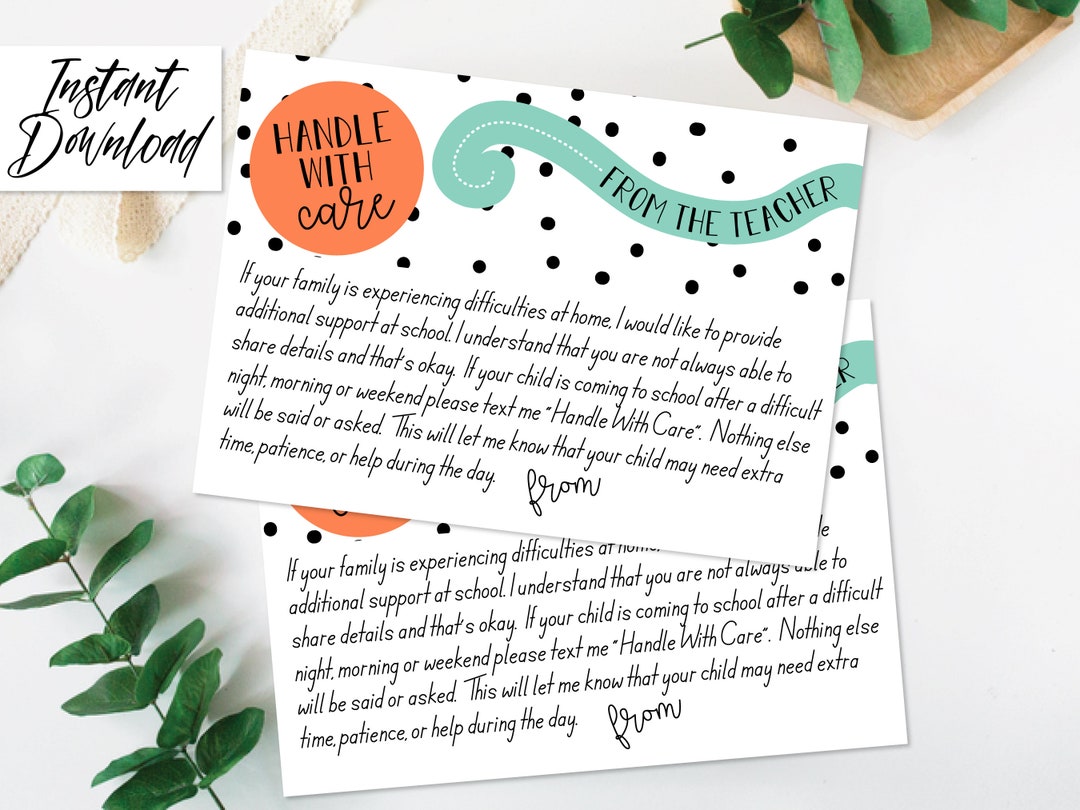 Instant
Download
HANDLE
WITH
care
FROM THE TEACHER
If your family is experiencing difficulties at home, I would like to provide
additional support at school. I understand that you are not always able to
share details and that's okay. If your child is coming to school after a difficult
night, morning or weekend please text me "Handle With Care". Nothing else
will be said or asked. This will let me know that your child may need extra
time, patience, or help during the day.
from
ER
If your family is experiencing difficulties at home,
additional support at school. I understand that you are not always able to
share details and that's okay. If your child is coming to school after a difficult
night, morning or weekend please text me "Handle With Care". Nothing else
will be said or asked. This will let me know that your child may need extra
time, patience, or help during the day.
from